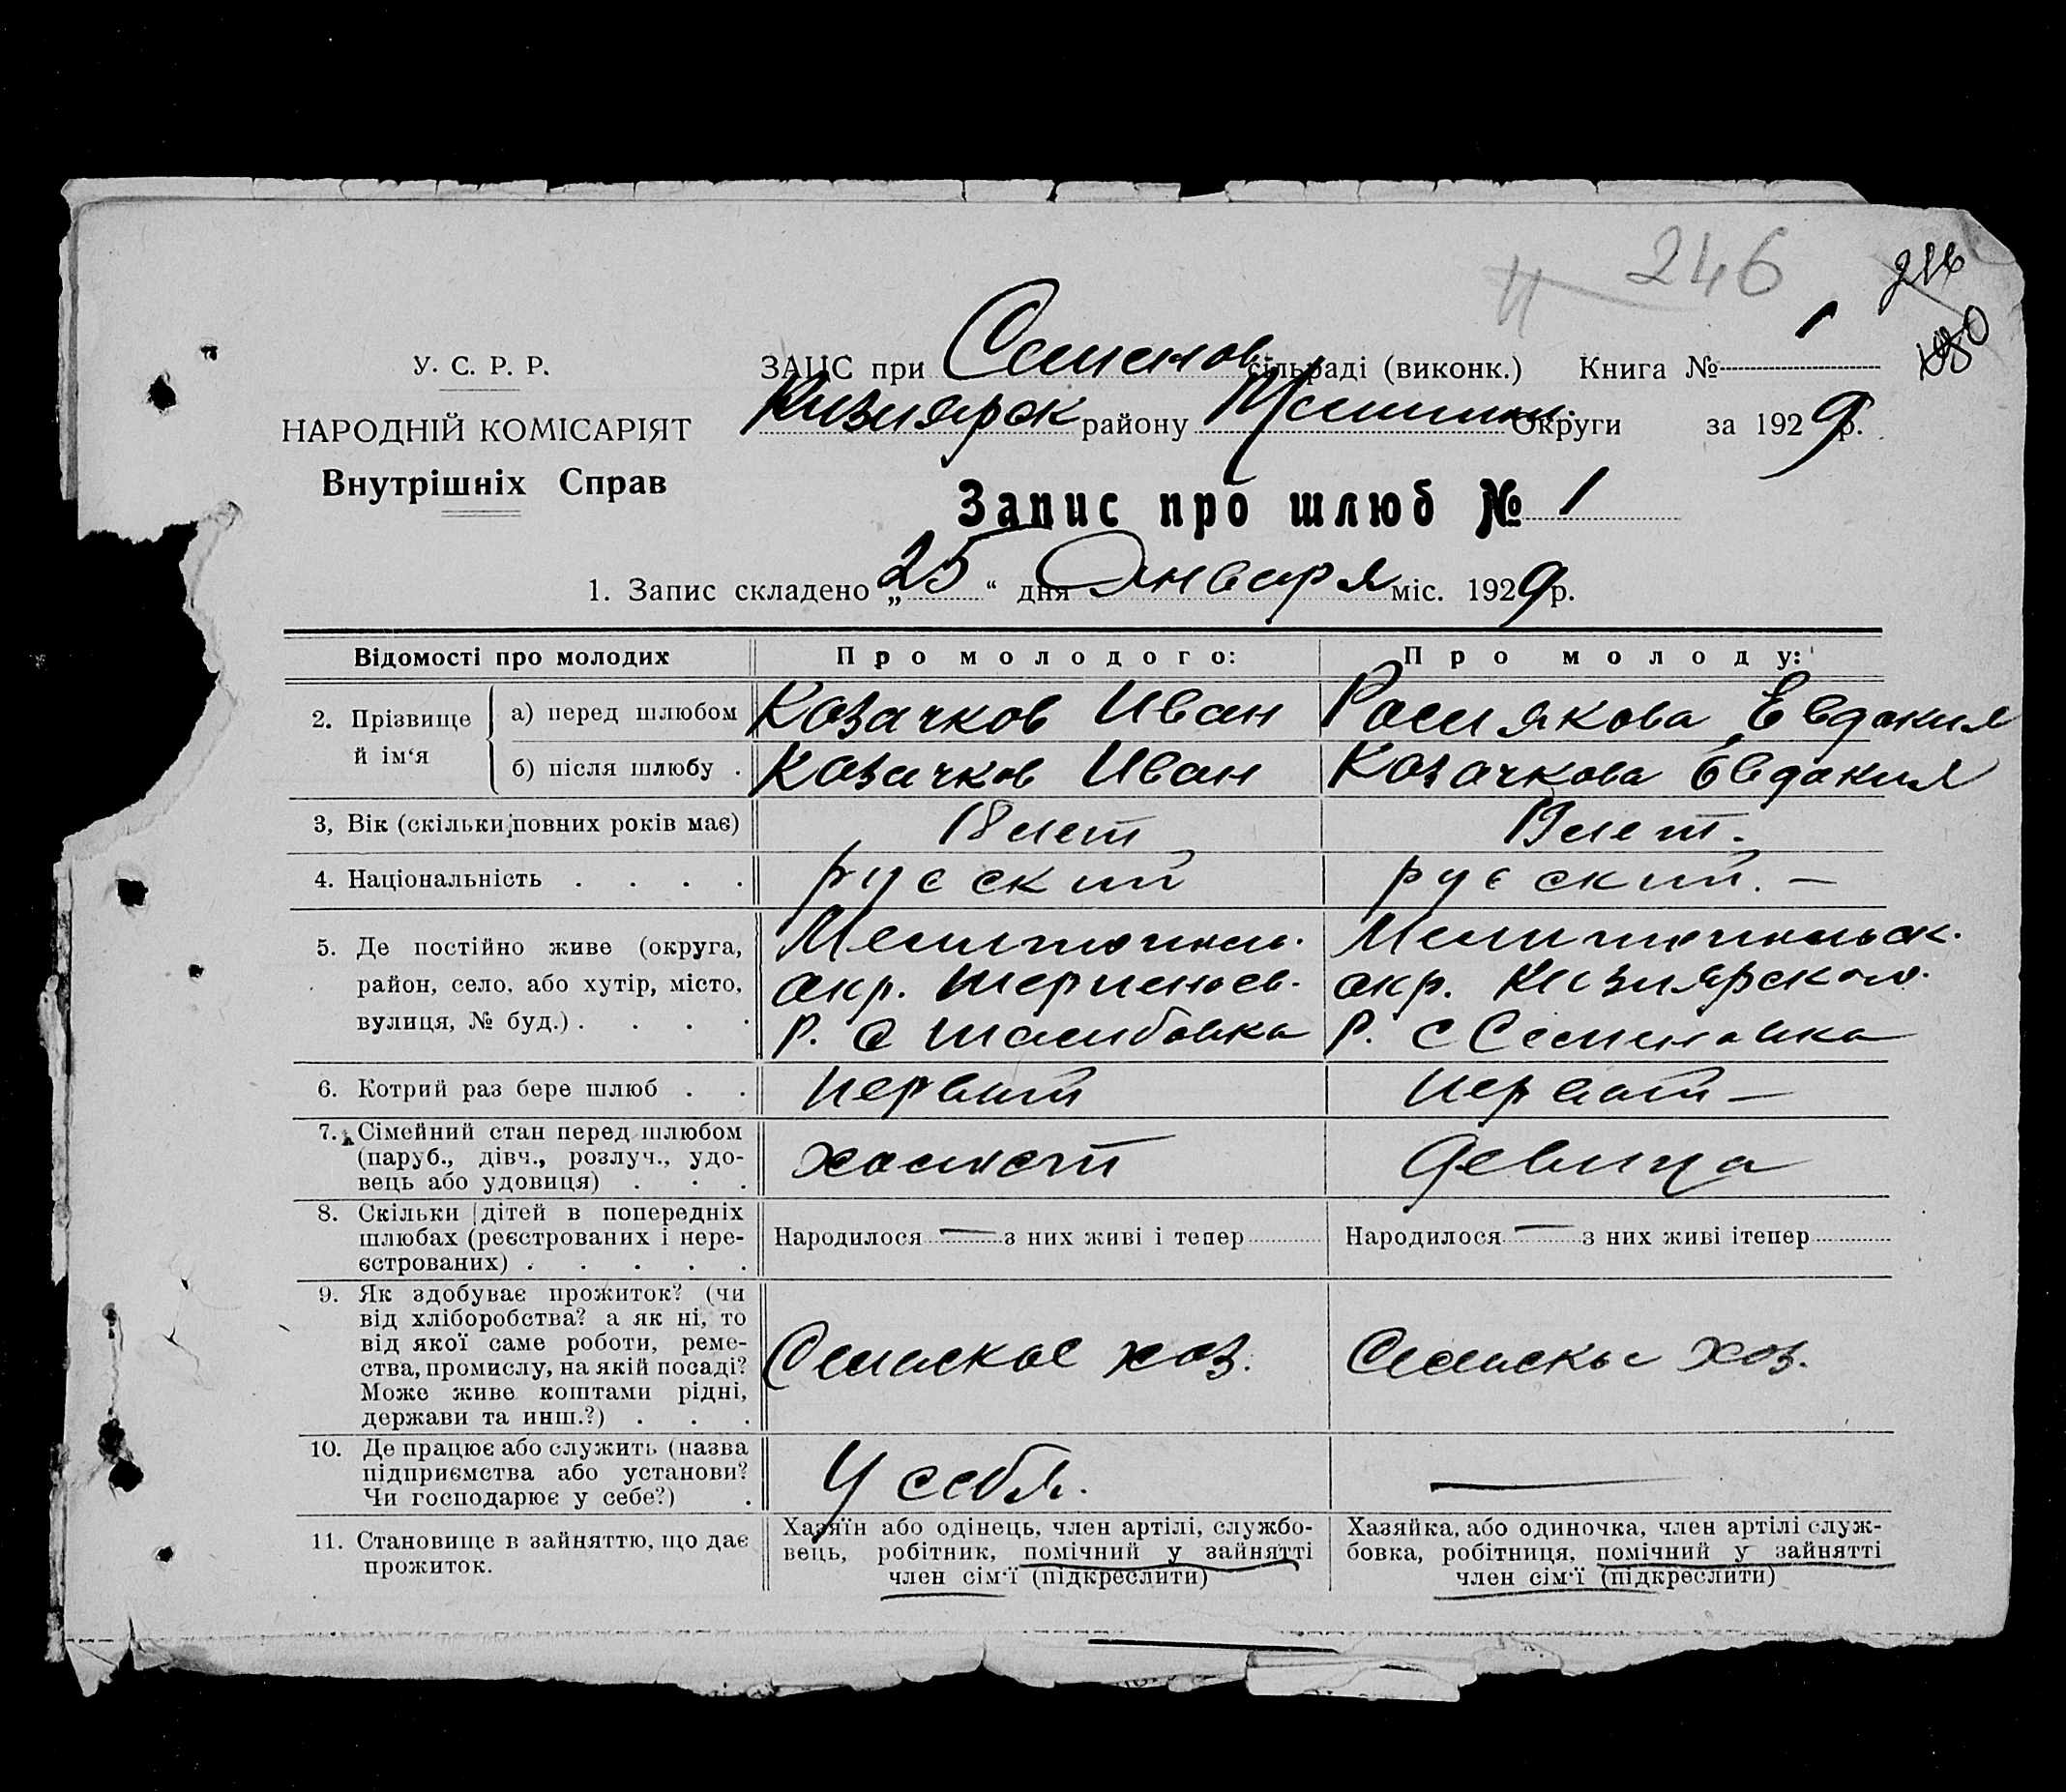 246
216
У. С. Р. Р.
ЗАЦС при Семенов сільраді (виконк.) Книга № 1
НАРОДНІЙ КОМІСАРІЯТ
Кизиярск району Мелитоп. Округи за 1929 р.
Внутрішніх Справ
Запис про шлюб № 1
1. Запис складено „25“ дня Января міс. 1929 р.
Відомості про молодих Про молодого: Про молоду:
2. Прізвище й ім‘я
а) перед шлюбом Козачков Иван Рослякова Евдокия
б) після шлюбу . Козачков Иван Козачкова Евдокия
3, Вік (скільки повних років має) 18 лет 19 лет.
4. Національність . . . . русский русский. —
5. Де постійно живе (округа, Мелитополь. Мелитопольск.
район, село, або хутір, місто, окр. окр. Кизиярского.
вулиця, № буд.) . . . . Р. с Р. с Семеновка
6. Котрий раз бере шлюб . . первый первый —
7. Сімейний стан перед шлюбом
(паруб., дівч., розлуч., удо- холост девица
вець або удовиця) . . .
8. Скільки дітей в попередніх
шлюбах (реєстрованих і нере- Народилося — з них живі і тепер Народилося — з них живі ітепер
єстрованих) . . . . .
9. Як здобуває прожиток? (чи
від хліборобства? а як ні, то
від якої саме роботи, реме-
ства, промислу, на якій посаді? Сельское хоз. Сельское хоз.
Може живе коштами рідні,
держави та инш.?) . . .
10. Де працює або служить (назва
підприємства або установи? У себя. —
Чи господарює у себе?) .
11. Становище в зайняттю, що дає
прожиток.
Хазяїн або одінець, член артілі, службо-
вець, робітник, помічний у зайнятті
член сім‘ї (підкреслити)
Хазяйка, або одиночка, член артілі служ-
бовка, робітниця, помічний у зайнятті
член сім‘ї (підкреслити)